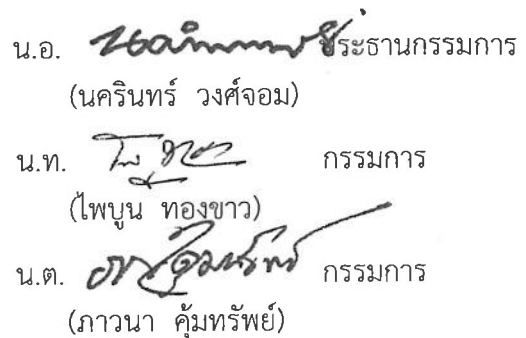 น.อ. ประธานกรรมการ
(นครินทร์ วงศ์จอม)
น.ท. กรรมการ
(ไพบูน ทองขาว)
น.ต. กรรมการ
(ภาวนา คุ้มทรัพย์)